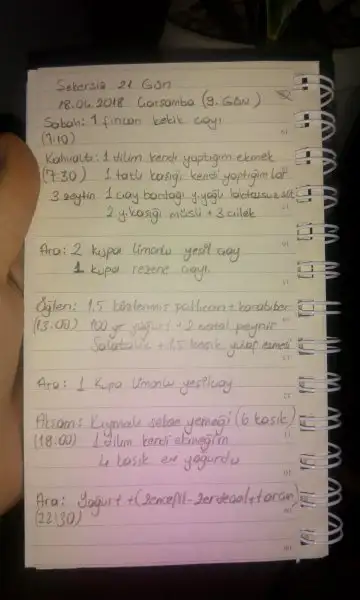 Şekersiz 21 Gün
18.04.2018 Çarşamba (9. Gün)
Sabah: 1 fincan kekik çayı
(7:10)
Kahvaltı: 1 dilim kendi yaptığım ekmek
(7:30) 1 tatlı kaşığı kendi yaptığım lor
3 zeytin 1 çay bardağı y.yağlı laktozsuz süt
2 y.kaşığı müsli + 3 çilek
Ara: 2 kupa limonlu yeşil çay
1 kupa rezene çayı
Öğlen: 1,5 közlenmiş patlıcan + karabiber
(13:00) 100 gr yoğurt + 2 peynir
Salatalık + 1,5 kaşık yulaf ezmesi
Ara: 1 kupa limonlu yeşilçay
Akşam: Kıymalı sebze yemeği (6 kaşık)
(18:00) 1 dilim kendi ekmeğim
4 kaşık ev yoğurdu
Ara: Yoğurt + (zencefil-zerdeçal+tarçın)
(22:30)